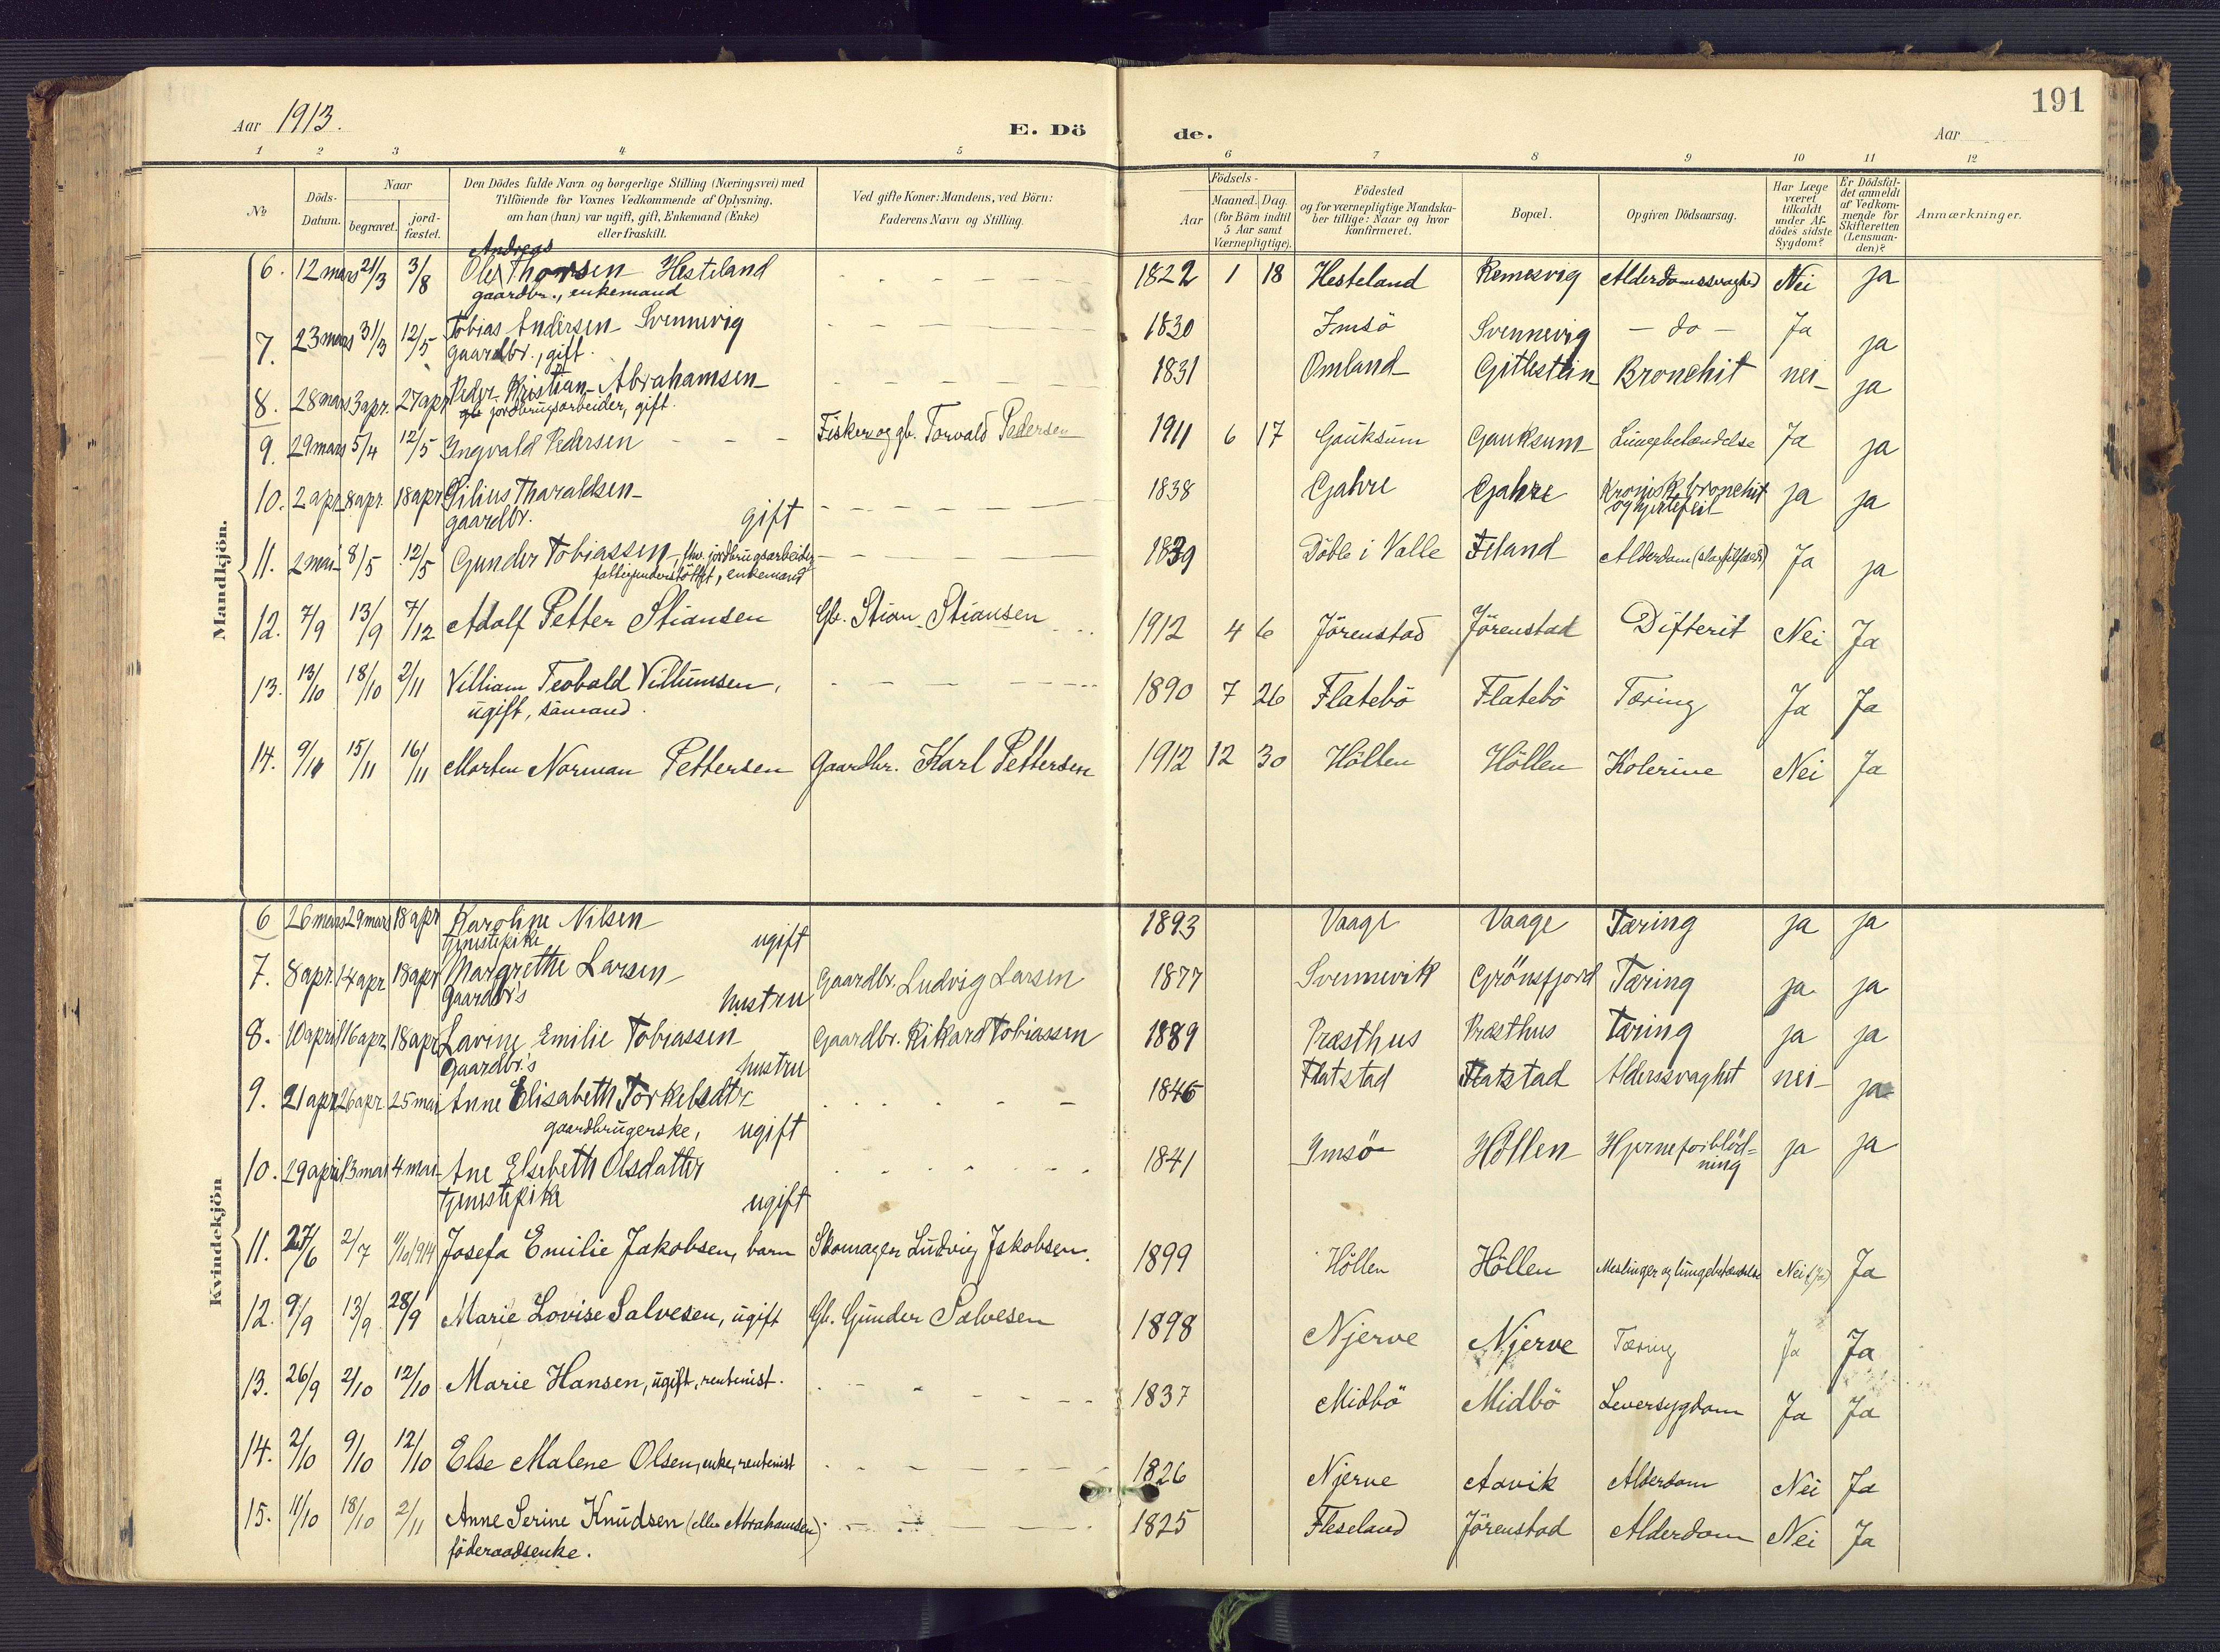 191
Aar 1913. E. Dö de. Aar
1 2 3 4 5 6 7 8 9 10 11 12
№
Döds-
Datum.
Naar
begravet.
jord-
fæstet.
Den Dödes fulde Navn og borgerlige Stilling (Næringsvei) med
Tilföiende for Voxnes Vedkommende af Oplysning,
om han (hun) var ugift, gift, Enkemand (Enke)
eller fraskilt.
Ved gifte Koner: Mandens, ved Börn:
Faderens Navn og Stilling.
Födsels-
Aar
Maaned. Dag.
(for Börn indtil
5 Aar samt
Værnepligtige).
Födested
og for værnepligtige Mandska-
ber tillige: Naar og hvor
konfirmeret.
Bopæl.
Opgiven Dödsaarsag.
Har Læge
været
tilkaldt
under Af-
dödes sidste
Sygdom?
Er Dödsfal-
det anmeldt
af Vedkom-
mende for
Skifteretten
(Lensman-
den)?
Anmærkninger.
Mandkjön.
Andreas
6. 12 mars 21/3 3/8 Ole Thomsen Hesteland 1822 1 18 Hesteland Remesvig Alderdomssvaghed Nei ja
gaardbr., enkemand
7. 23 mars 31/3 12/5 Tobias Andersen Svennevig 1830 Imsö Svennevig – do – Ja ja
gaardbr., gift.
8. 28 mars 3 apr. 27 apr Peder Kristian Abrahamsen 1831 Omland Gitlestein Bronchit nei ja
jordbrugsarbeider, gift.
9. 29 mars 5/4 12/5 Ingvald Pedersen Fisker og gb. Torvald Pedersen 1911 6 17 Gauksum Gauksum Lungebetændelse Ja ja
10. 2 apr 8 apr. 18 apr Tharaldsen 1838 Gahre Gahre Kronisk bronchit ja ja
gaardbr. gift og hjertefeil
11. 2 mai 8/5 12/5 Gunder Tobiassen, jordbrugsarbeider 1839 Döble i Valle Eiland Alderdom Ja ja
fattigunderstöttet, enkemand
12. 7/9 13/9 7/12 Adolf Petter Stiansen Gb. Stian Stiansen 1912 4 6 Jörenstad Jörenstad Difterit Nei Ja
13. 13/10 18/10 2/11 Villiam Teobald Villumsen, 1890 7 26 Flatebö Flatebö Tæring Ja Ja
ugift, sömand.
14. 9/11 15/11 16/11 Morten Norman Pettersen Gaardbr. Karl Pettersen 1912 12 30 Höllen Höllen Kolerine Nei Ja
Kvindekjön
6 26 mars 29 mars 18 apr Karoline Nilsen 1893 Vaage Vaage Tæring ja ja
tjenestepike ugift
7. 8 apr. 14 apr 18 apr Margrethe Larsen Gaardbr. Ludvig Larsen 1877 Svennevik Grönsfjord Tæring ja ja
Gaardbr's hustru
8. 10 april 16 apr. 18 apr Lavine Emilie Tobiassen Gaardbr. Rikard Tobiassen 1889 Præsthus Præsthus Tæring ja ja
Gaardbr.'s hustru
9. 21 apr 26 apr. 25 mai Anne Elisabeth Torkelsdtr 1846 Flatstad Flatstad Alderssvaghet nei ja
gaardbrugerske, ugift
10. 29 april 3 mai 4 mai Ane Elsebeth Olsdatter 1841 Imsö Höllen Hjerneforblöd= ja ja
ning
tjenestepike ugift
11. 27/6 2/7 11/10 1914 Josefa Emilie Jakobsen, barn Skomager Ludvig Jakobsen. 1899 Höllen Höllen Meslinger og lungebetændelse Nei (Ja) Ja
12. 9/9 13/9 28/9 Marie Lovise Salvesen, ugift Gb. Gunder Salvesen 1898 Njerve Njerve Tæring Ja Ja
13. 26/9 2/10 12/10 Marie Hansen, ugift, rentenist. 1837 Midbö Midbö Leversygdom Ja Ja
14. 2/10 9/10 12/10 Else Malene Olsen, enke, rentenist 1826 Njerve Aavik Alderdom Nei Ja
15. 11/10 18/10 2/11 Anne Serine Knudsen (eller Abrahamsen) 1825 Fleseland Jörenstad Alderdom Nei Ja
föderaadsenke.